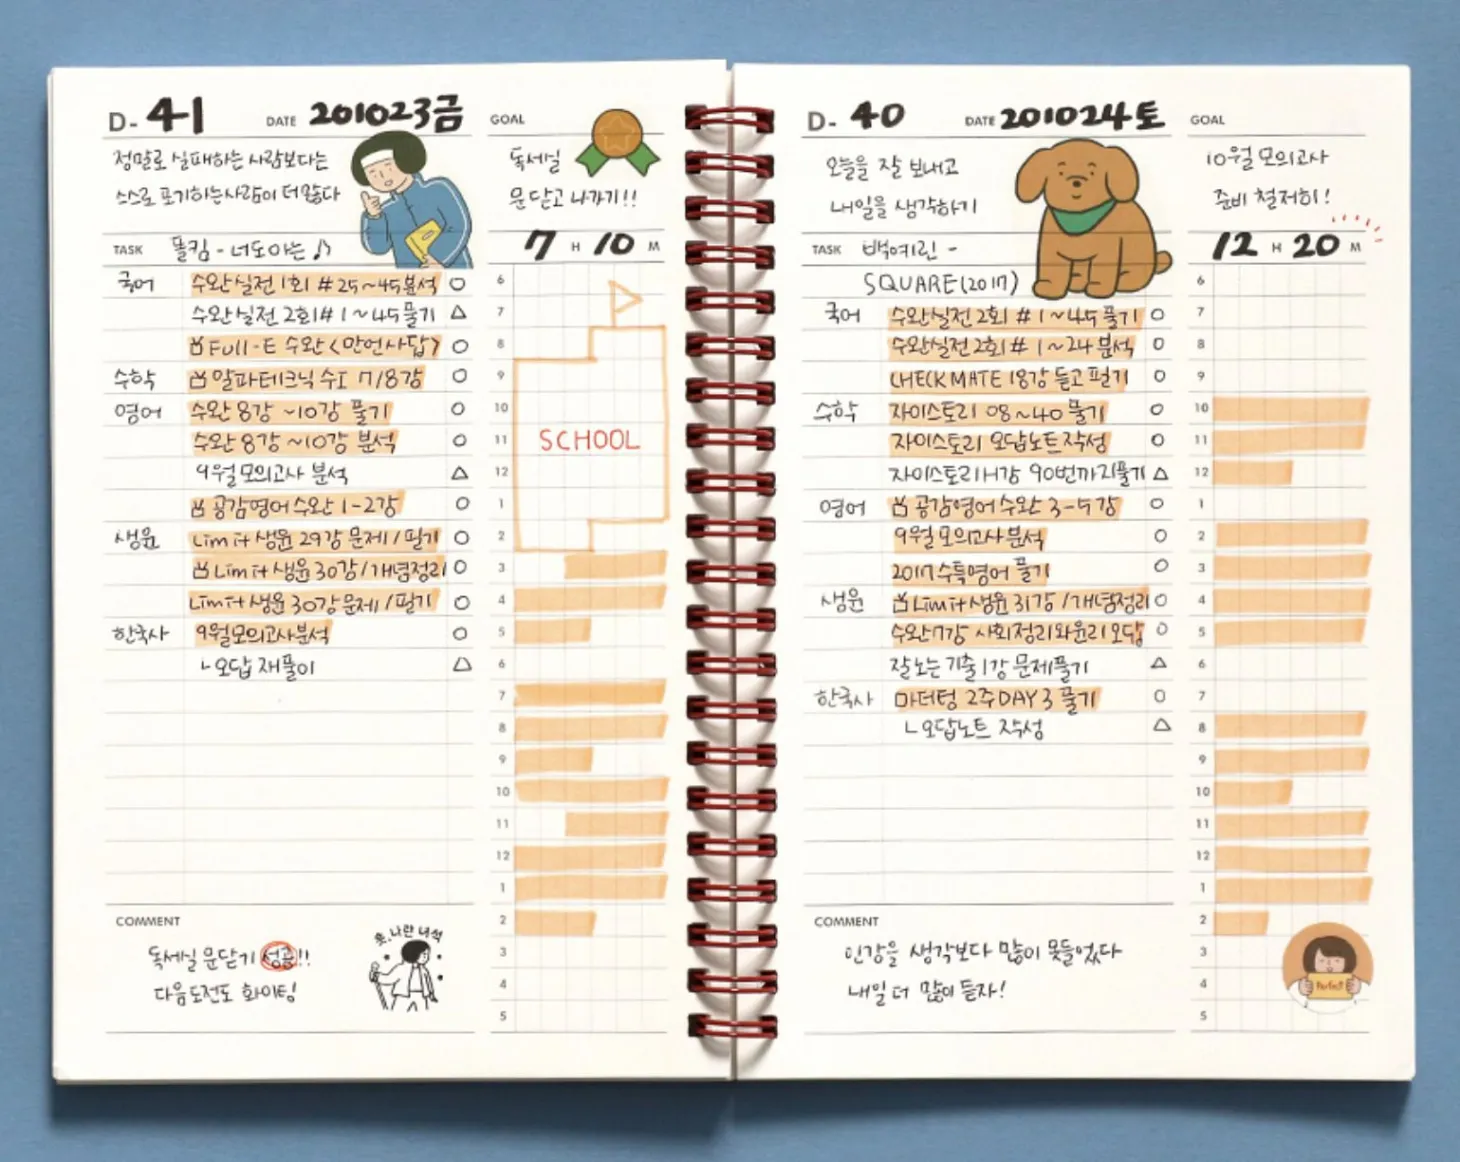 D- 41
DATE 201023금
정말로 실패하는 사람보다는
스스로 포기하는사람이 더많다
TASK 폴킴 - 너도아는 ♪
국어 수완실전 1회 #25~45분석 ○
수완실전 2회# 1~45풀기 △
Full-E 수완 <만언사답> ○
수학 알파테크닉 수I 7/8강 ○
영어 수완 8강 ~10강 풀기 ○
수완 8강 ~10강 분석 ○
9월모의고사 분석 △
공감영어수완 1-2강 ○
생윤 Limit 생윤 29강 문제 / 필기 ○
Limit 생윤 30강 /개념정리 ○
Limit 생윤 30강 문제 / 필기 ○
한국사 9월모의고사분석 ○
ㄴ오답 재풀이 △
COMMENT
독세실 문닫기 성공!!
다음도전도 화이팅!
훗, 나란 녀석
GOAL
독세실
문닫고 나가기!!
7 H 10 M
6
7
8
9
10
11
12
1
2
3
4
5
6
7
8
9
10
11
12
1
2
3
4
5
SCHOOL
D- 40
DATE 201024토
오늘을 잘 보내고
내일을 생각하기
TASK 백예린 -
SQUARE(2017)
국어 수완실전2회 #1~45 풀기 ○
수완실전2회# 1~24 분석 ○
CHECKMATE 18강 듣고 필기 ○
수학 자이스토리 08~40 풀기 ○
자이스토리 오답노트작성 ○
자이스토리H강 90번까지풀기 △
영어 공감영어수완 3-5강 ○
9월모의고사분석 ○
2017수특영어 풀기 ○
생윤 Limit생윤 31강 /개념정리 ○
수완7강 사회정리와윤리오답 ○
잘노는 기출 1강 문제풀기 △
한국사 마더텅 2주DAY3 풀기 ○
ㄴ오답노트 작성 △
COMMENT
인강을 생각보다 많이 못들었다
내일 더 많이 듣자!
GOAL
10월 모의고사
준비 철저히!
12 H 20 M
6
7
8
9
10
11
12
1
2
3
4
5
6
7
8
9
10
11
12
1
2
3
4
5
Perfect